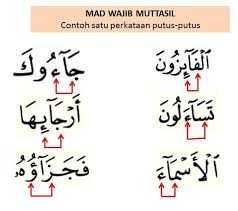 MAD WAJIB MUTTASIL
Contoh satu perkataan putus-putus
ٱلْفَآئِزُونَ جَآءُوكَ
تَسَآءَلُونَ أَرْجَآئِهَا
ٱلْأَسْمَآءَ فَجَزَآؤُهُۥ